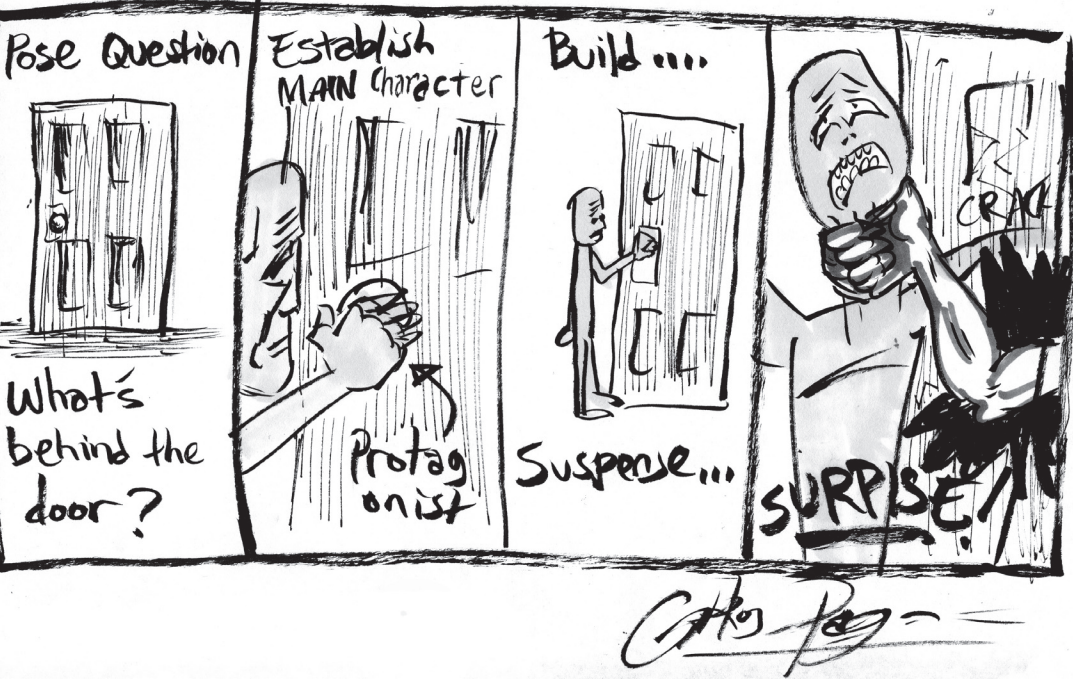 Pose Question
What's
behind the
door?
Establish
MAIN Character
Protag
onist
Build....
Suspense...
CRACK
SURPISE!